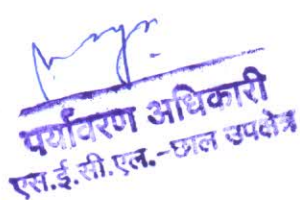 पर्यावरण अधिकारी
एस.ई.सी.एल.-छाल उपक्षेत्र